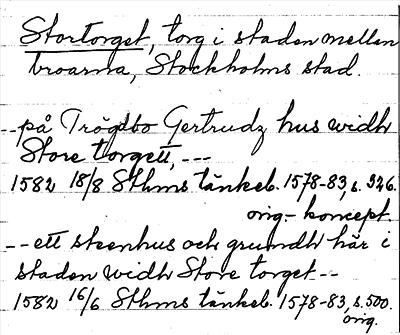 Stortorget, torg i staden mellan
broarna, Stockholms stad.
--på Trögbo Gertrudz hus widh
Store torgett, ---
1582 18/8 Sthms tänkeb. 1578-83, s. 326.
orig.- koncept.
--ett steenhus och grundh här i
staden widh Store torget--
1582 16/6 Sthms tänkeb. 1578-83, s. 500.
orig.